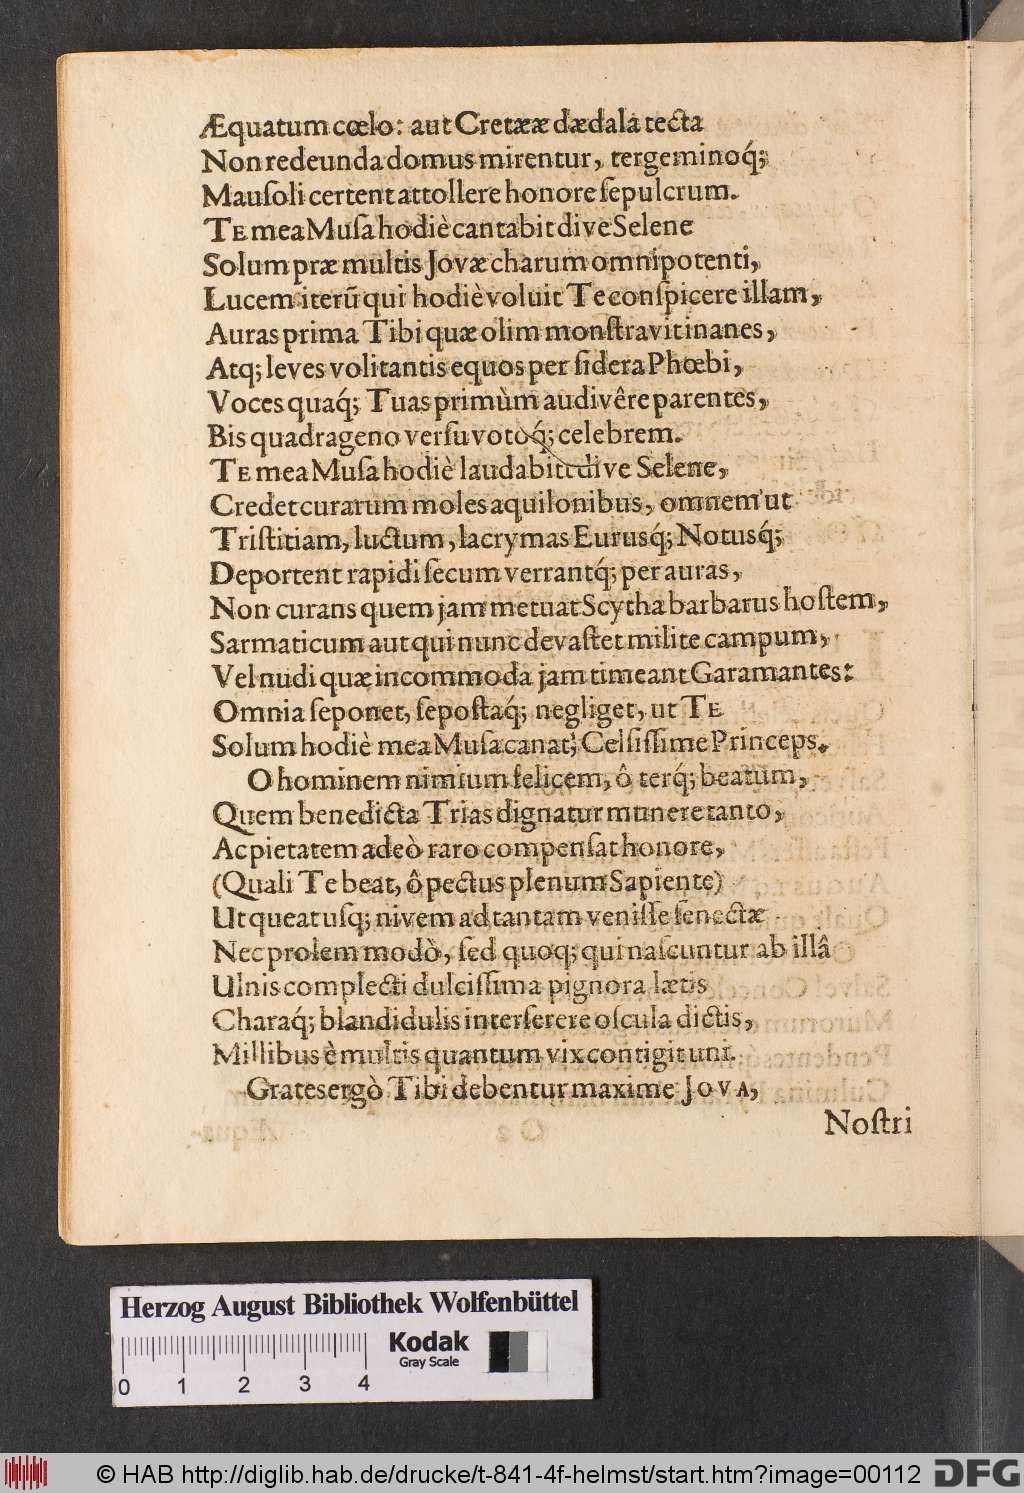 Æquatum cœlo: aut Cretææ dædala tecta
Non redeunda domus mirentur, tergeminoq́;
Mauſoli certent attollere honore ſepulcrum.
TE mea Muſa hodiè cantabit dive Selene
Solum præ multis Jovæ charum omnipotenti,
Lucem iterũ qui hodiè voluit Te conſpicere illam,
Auras prima Tibi quæ olim monſtravit inanes,
Atq; leves volitantis equos per ſidera Phœbi,
Voces quaq́; Tuas primùm audivêre parentes,
Bis quadrageno verſu votoq́; celebrem.
TE mea Muſa hodiè laudabit dive Selene,
Credet curarum moles aquilonibus, omnem ut
Triſtitiam, luctum, lacrymas Eurusq́; Notusq́;
Deportent rapidi ſecum verrantq́; per auras,
Non curans quem jam metuat Scytha barbarus hoſtem,
Sarmaticum aut qui nunc devaſtet milite campum,
Vel nudi quæ incommoda jam timeant Garamantes:
Omnia ſeponet, ſepoſtaq́; negliget, ut TE
Solum hodiè mea Muſa canat, Celſiſſime Princeps.
O hominem nimium felicem, ô terq́; beatum,
Quem benedicta Trias dignatur munere tanto,
Ac pietatem adeò raro compenſat honore,
(Quali Te beat, ô pectus plenum Sapiente)
Ut queat uſq; nivem ad tantam veniſſe ſenectæ
Nec prolem modò, ſed quoq; qui naſcuntur ab illâ
Ulnis complecti dulciſſima pignora lætis
Charaq́; blandidulis interſerere oſcula dictis,
Millibus è multis quantum vix contigit uni.
Grates ergò Tibi debentur maxime JOVA,
Noſtri
Herzog August Bibliothek Wolfenbüttel
Kodak
Gray Scale
0 1 2 3 4
© HAB http://diglib.hab.de/drucke/t-841-4f-helmst/start.htm?image=00112
DFG